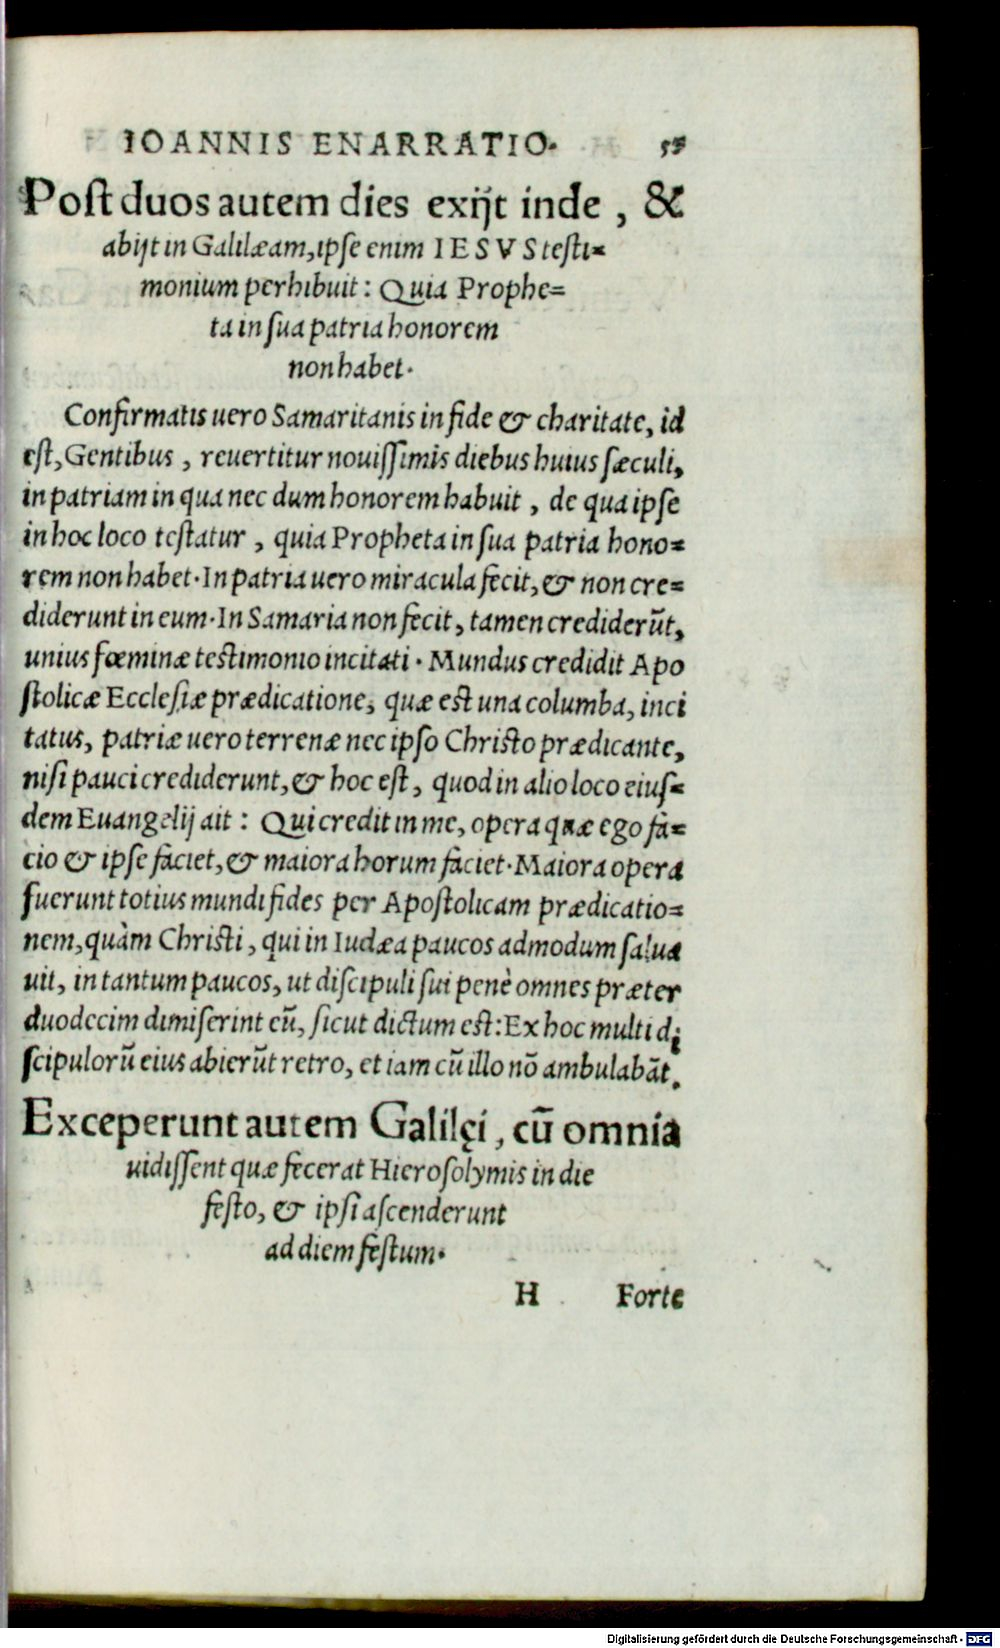 IOANNIS ENARRATIO.
Post duos autem dies exijt inde, &
abijt in Galilæam, ipse enim IESVS testi=
monium perhibuit: Quia Prophe=
ta in sua patria honorem
non habet.
Confirmatis uero Samaritanis in fide & charitate, id
est, Gentibus, reuertitur nouissimis diebus huius sæculi,
in patriam in qua nec dum honorem habuit, de qua ipse
in hoc loco testatur, quia Propheta in sua patria hono=
rem non habet. In patria uero miracula fecit, & non cre=
diderunt in eum. In Samaria non fecit, tamen crediderũt,
unius fœminæ testimonio incitati. Mundus credidit Apo
stolicæ Ecclesiæ prædicatione, quæ est una columba, inci
tatus, patriæ uero terrenæ nec ipso Christo prædicante,
nisi pauci crediderunt, & hoc est, quod in alio loco eius=
dem Euangelij ait: Qui credit in me, opera quæ ego fa=
cio & ipse faciet, & maiora horum faciet. Maiora opera
fuerunt totius mundi fides per Apostolicam prædicatio=
nem, quàm Christi, qui in Iudæa paucos admodum salua
uit, in tantum paucos, ut discipuli sui penè omnes præter
duodecim dimiserint eũ, sicut dictum est: Ex hoc multi di
scipulorũ eius abierũt retro, et iam cũ illo nõ ambulabãt.
Exceperunt autem Galilęi, cũ omnia
uidissent quæ fecerat Hierosolymis in die
festo, & ipsi ascenderunt
ad diem festum.
H Forte
Digitalisierung gefördert durch die Deutsche Forschungsgemeinschaft - DFG